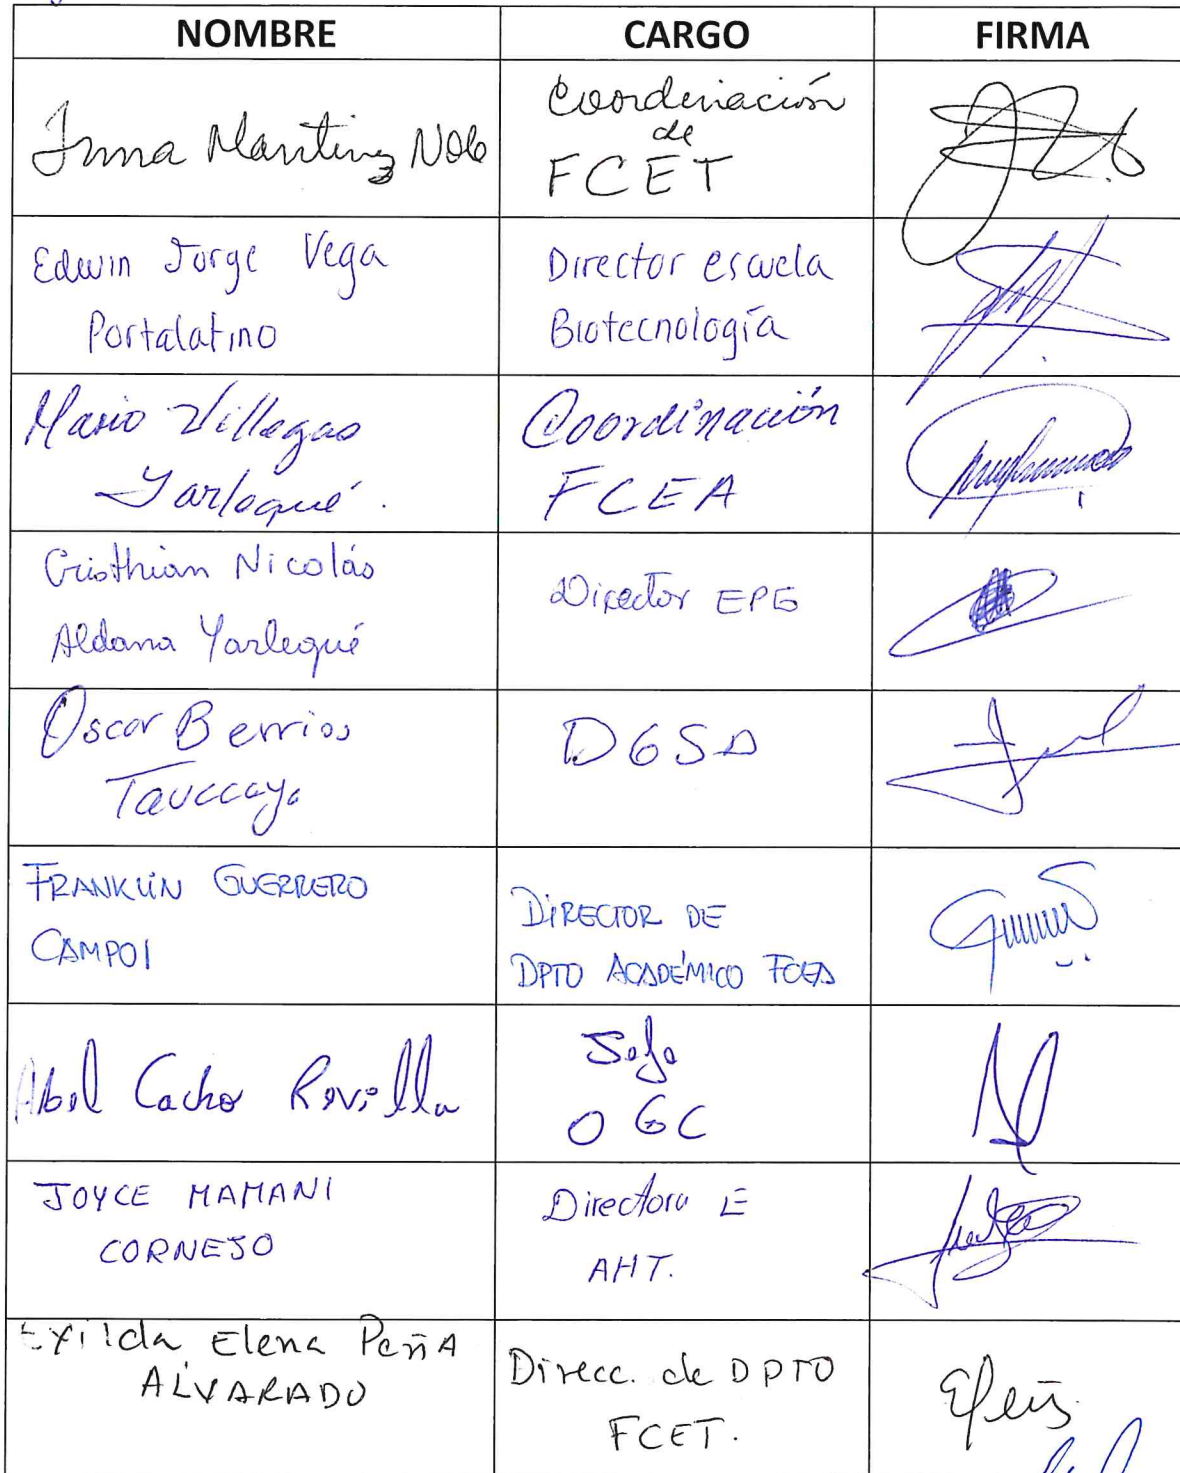 NOMBRE CARGO FIRMA
Irma Martinez Nole
Coordinación
de
FCET
Edwin Jorge Vega
Portalatino
Director escuela
Biotecnología
Mario Villegas
Yarlequé.
Coordinación
FCEA
Cristhian Nicolás
Aldana Yarlequé
Director EPG
Oscar Berrios
Tauccaya
DGSA
FRANKLIN GUERRERO
CAMPOS
DIRECTOR DE
DPTO ACADÉMICO FCEA
Abel Cacho Revilla
Jefe
OGC
JOYCE MAMANI
CORNEJO
Directora E
AHT.
Exilda Elena PeñA
ALVARADO
Direcc. de DPTO
FCET.